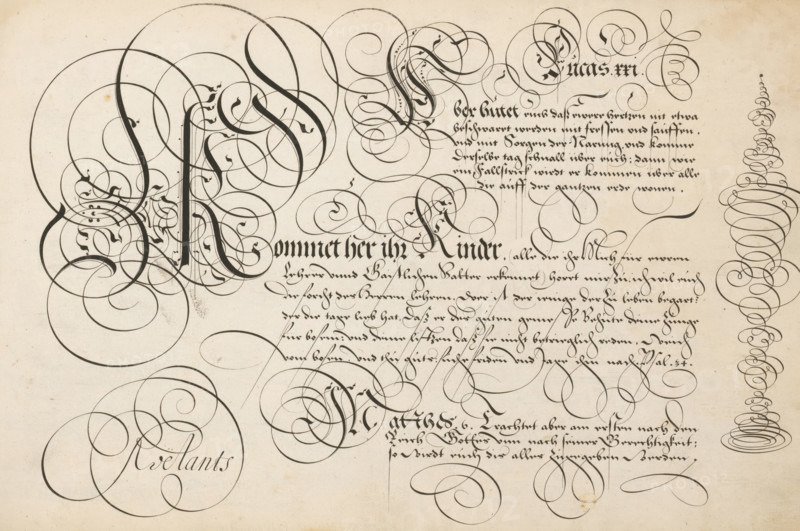 Lucas. xxi.
Aber hütet euch daß ewere Hertzen nit etwa
beschwaret werden mit fressen vnd sauffen,
vnd mit Sorgen der Narung, vnd komme
derselbe tag schnell vber euch; dann wie
ein Fallstrick wirdt er kommen vber alle
die auff der gantzen erde wonen.
Kommet her ihr Kinder, alle die ihr Mich für eweren
Lehrer vnnd Gaistlichen Vatter erkennet, horet mir zu, ich wil euch
die forcht des Herren lehren. Wer ist der ienige der zu leben begart:
der die tage lieb hat, daß er der guten genieß. Behüte deine Zunge
für bosem: vnd deine lesstzen daß sie nicht betrieglich reden. Wend
vom bosem vnd thu gutes: suche frieden vnd Jage ihm nach. Psal. 34.
Matthes. 6. Trachtet aber am ersten nach dem
Reich Gottes vnn nach seiner Gerechtigkeit:
so wirdt euch dis alles zugegeben werden.
Roelants